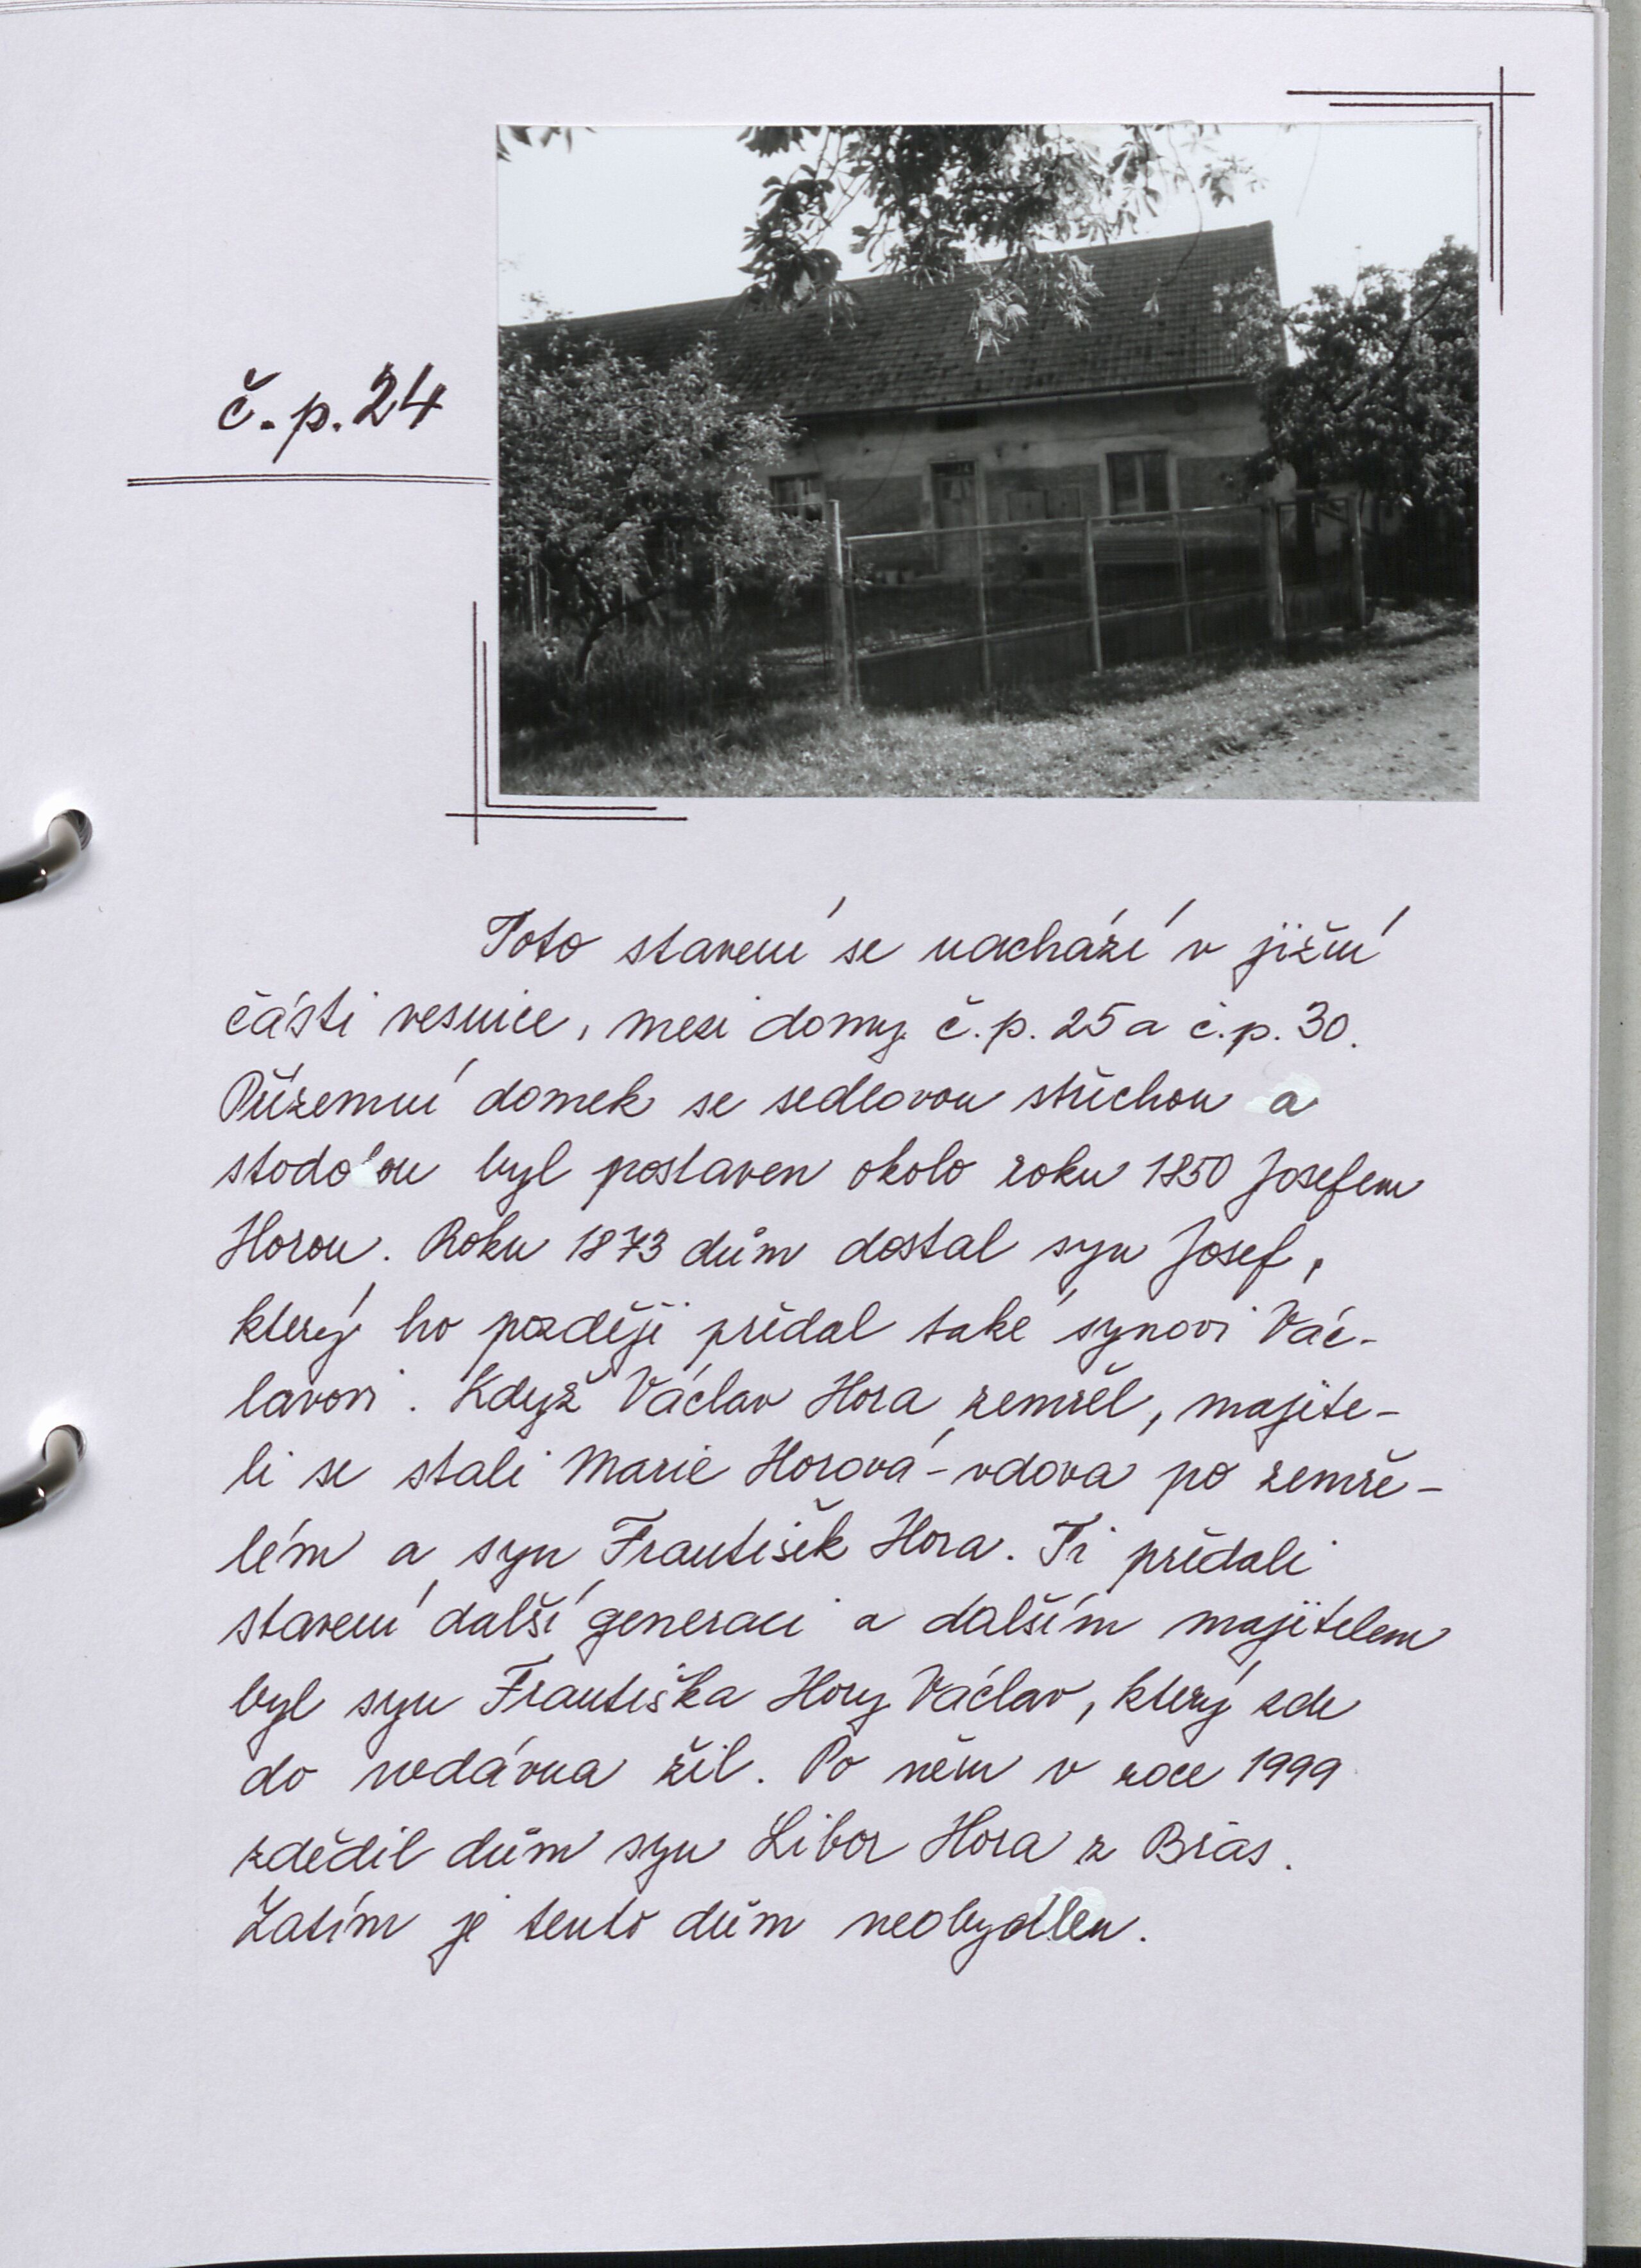 č.p. 24
Toto stavení se nachází v jižní
části vesnice, mezi domy č.p. 25 a č.p. 30.
Přízemní domek se sedlovou střechou a
stodolou byl postaven okolo roku 1850 Josefem
Horou. Roku 1873 dům dostal syn Josef,
který ho později předal také synovi Vác-
lavovi. Když Václav Hora zemřel, majite-
li se stali Marie Horová - vdova po zemře-
lém a syn František Hora. Ti předali
stavení další generaci a dalším majitelem
byl syn Františka Hory Václav, který zde
do nedávna žil. Po něm v roce 1999
zdědil dům syn Libor Hora z Břas.
Zatím je tento dům neobydlen.